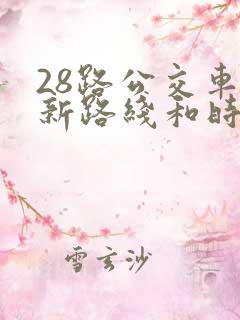 28路公交車
新路綫和時
雪玄沙